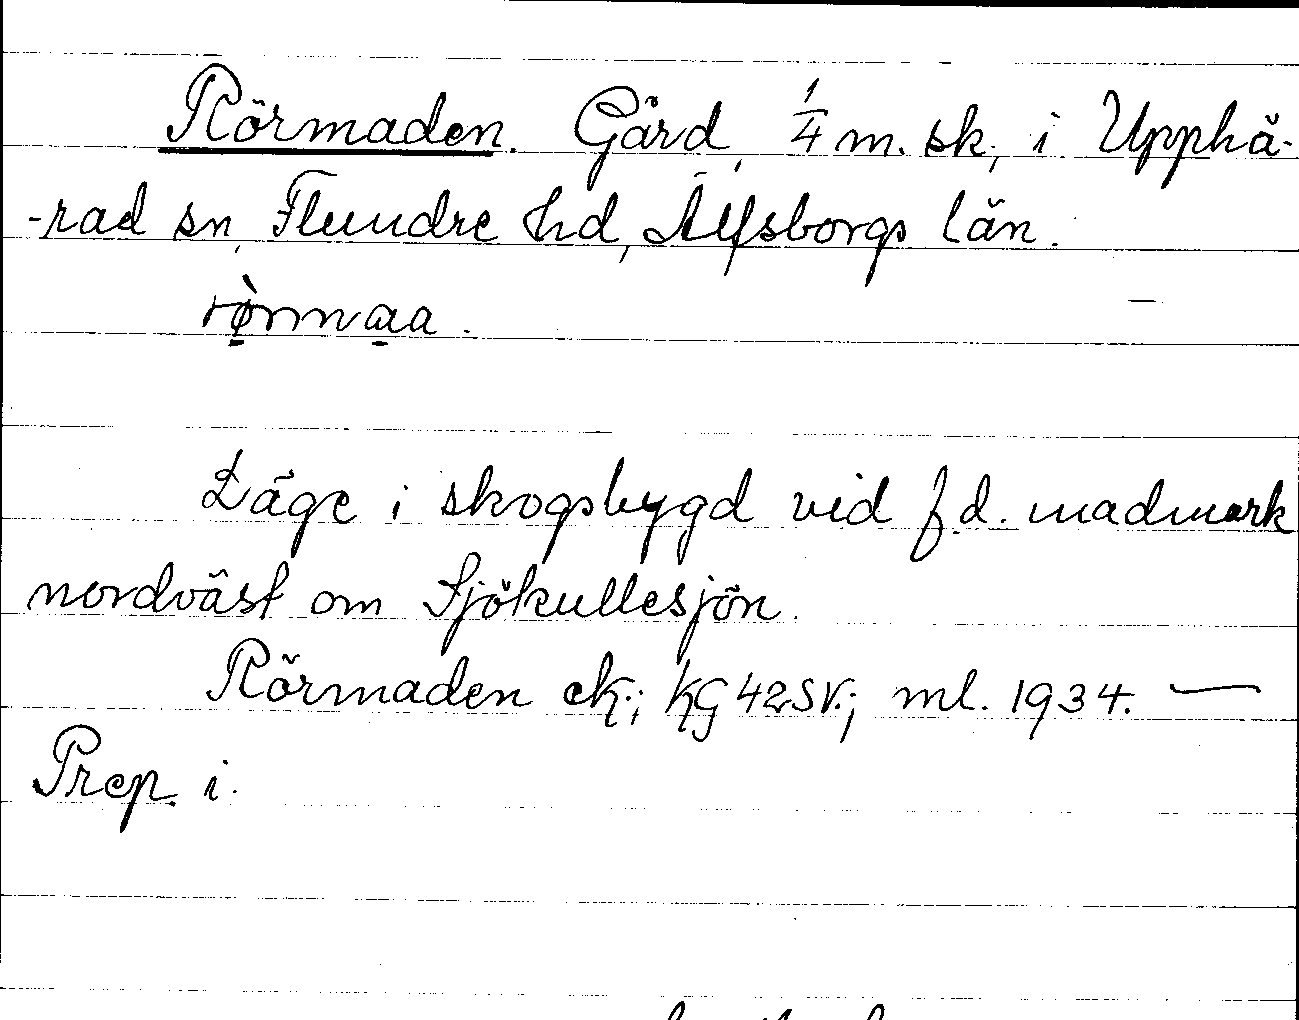 Rörmaden. Gård, 1/4 m. sk, i Upphä-
-rad sn, Flundre hd, Älfsborgs län.
rø̀rmaa.
Läge i skogsbygd vid f.d. madmark
nordväst om Sjökullesjön.
Rörmaden ek.; KG 42SV.; ml. 1934. —
Prep. i.